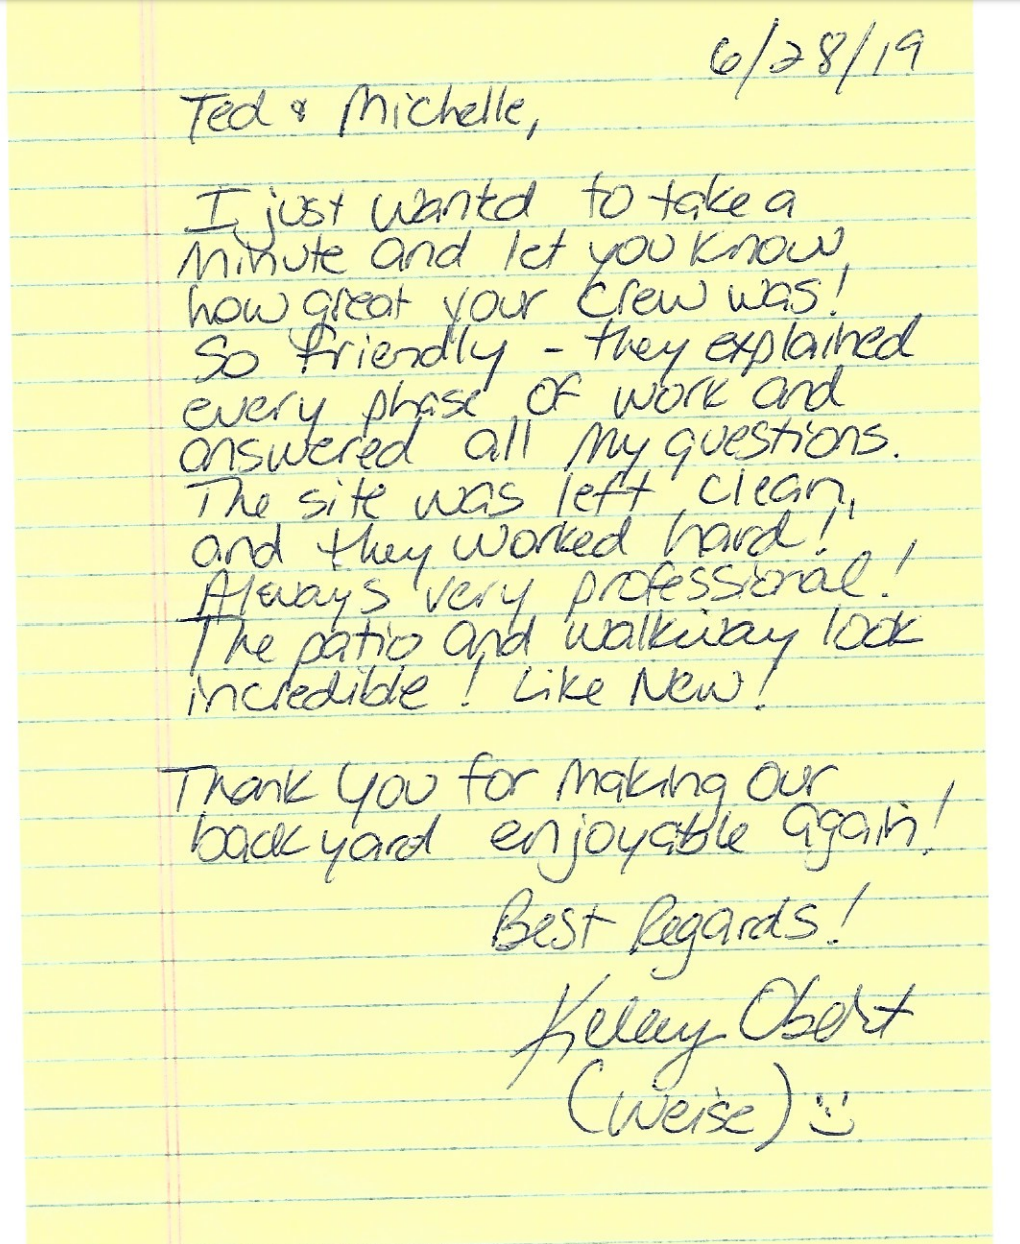 6/28/19
Ted & Michelle,
I just wanted to take a
minute and let you know
how great your crew was!
So friendly - they explained
every phase of work and
answered all my questions.
The site was left clean,
and they worked hard!
Always very professional!
The patio and walkway look
incredible! Like New!
Thank you for making our
backyard enjoyable again!
Best Regards!
(Weise)